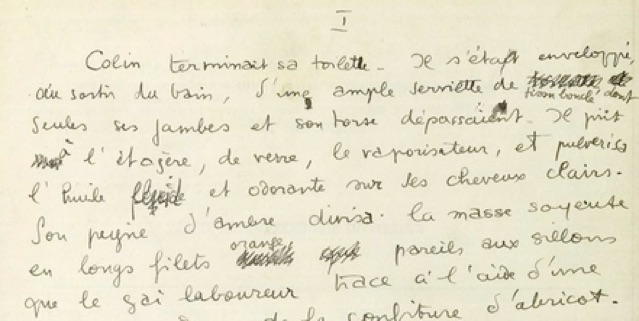 I
Colin terminait sa toilette. Il s'était enveloppé,
au sortir du bain, d'une ample serviette de tissu bouclé dont
seules ses jambes et son torse dépassaient. Il prit
à l'étagère, de verre, le vaporisateur, et pulvérisa
l'huile fluide et odorante sur ses cheveux clairs.
Son peigne d'ambre divisa la masse soyeuse
en longs filets orange pareils aux sillons
que le gai laboureur trace à l'aide d'une
de la confiture d'abricot.